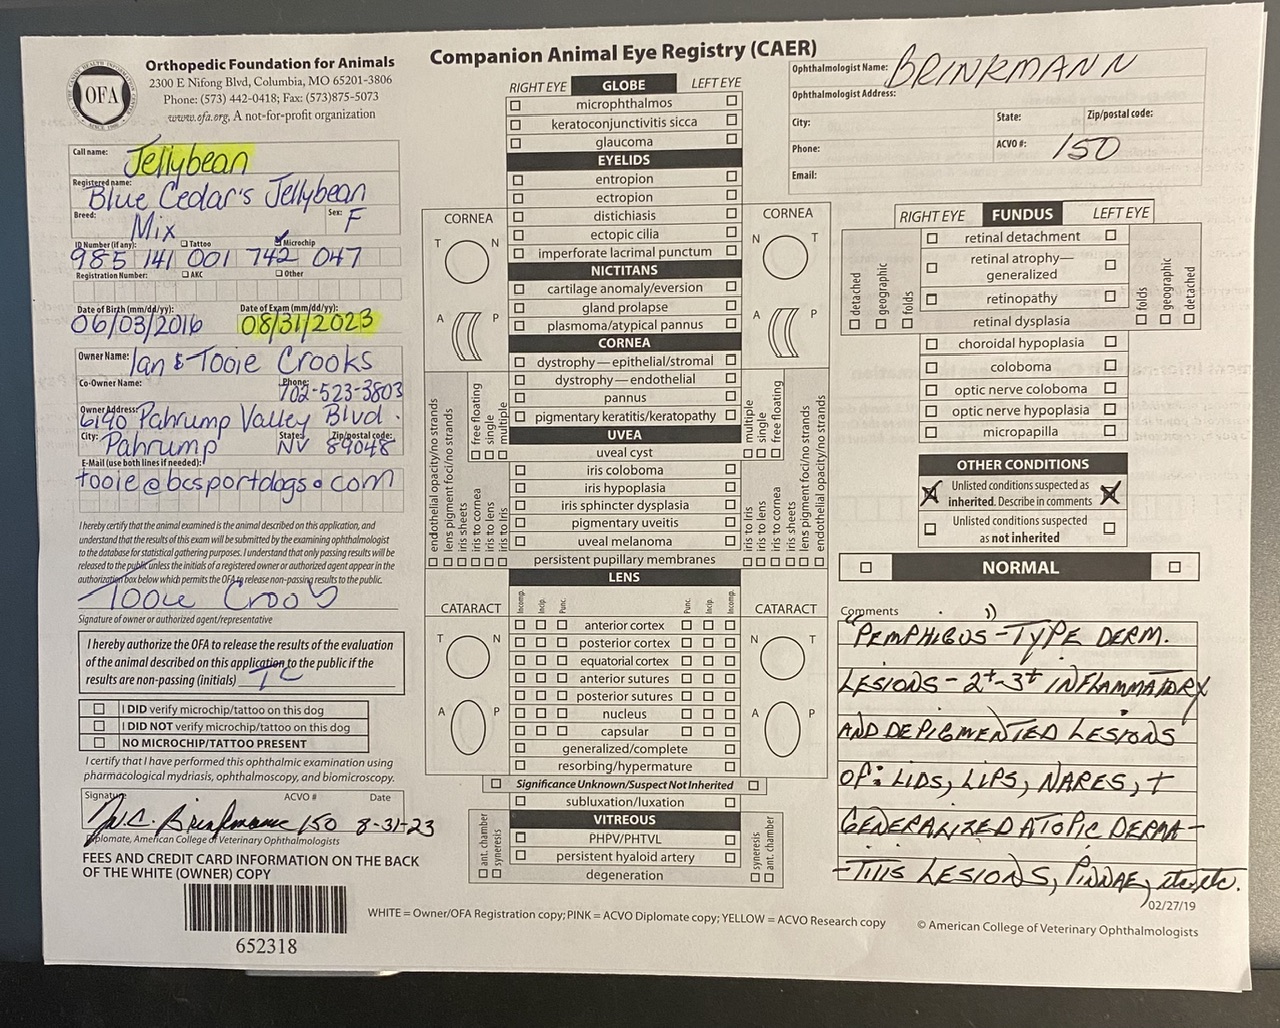 Orthopedic Foundation for Animals
2300 E Nifong Blvd, Columbia, MO 65201-3806
Phone: (573) 442-0418; Fax: (573)875-5073
www.ofa.org, A not-for-profit organization
OFA
Call name: Jellybean
Registered name: Blue Cedar's Jellybean
Breed: Mix Sex: F
ID Number (if any): Tattoo Microchip
985 141 001 742 047
Registration Number: AKC Other
Date of Birth (mm/dd/yy): Date of Exam (mm/dd/yy):
06/03/2016 08/31/2023
Owner Name: Ian & Tooie Crooks
Co-Owner Name: Phone: 702-523-3803
Owner Address: 6190 Pahrump Valley Blvd.
City: Pahrump State: NV Zip/postal code: 89048
E-Mail (use both lines if needed):
tooie@bcsportdogs.com
I hereby certify that the animal examined is the animal described on this application, and
understand that the results of this exam will be submitted by the examining ophthalmologist
to the database for statistical gathering purposes. I understand that only passing results will be
released to the public unless the initials of a registered owner or authorized agent appear in the
authorization box below which permits the OFA to release non-passing results to the public.
Signature of owner or authorized agent/representative
I hereby authorize the OFA to release the results of the evaluation
of the animal described on this application to the public if the
results are non-passing (initials) TC
I DID verify microchip/tattoo on this dog
I DID NOT verify microchip/tattoo on this dog
NO MICROCHIP/TATTOO PRESENT
I certify that I have performed this ophthalmic examination using
pharmacological mydriasis, ophthalmoscopy, and biomicroscopy.
Signature ACVO # Date
Brinkmann 150 8-31-23
Diplomate, American College of Veterinary Ophthalmologists
FEES AND CREDIT CARD INFORMATION ON THE BACK
OF THE WHITE (OWNER) COPY
652318
Companion Animal Eye Registry (CAER)
RIGHT EYE GLOBE LEFT EYE
microphthalmos
keratoconjunctivitis sicca
glaucoma
EYELIDS
entropion
ectropion
distichiasis
ectopic cilia
imperforate lacrimal punctum
NICTITANS
cartilage anomaly/eversion
gland prolapse
plasmoma/atypical pannus
CORNEA
dystrophy—epithelial/stromal
dystrophy—endothelial
pannus
pigmentary keratitis/keratopathy
UVEA
uveal cyst
iris coloboma
iris hypoplasia
iris sphincter dysplasia
pigmentary uveitis
uveal melanoma
persistent pupillary membranes
LENS
Incomp. Incip. Punc. Punc. Incip. Incomp.
anterior cortex
posterior cortex
equatorial cortex
anterior sutures
posterior sutures
nucleus
capsular
generalized/complete
resorbing/hypermature
Significance Unknown/Suspect Not Inherited
subluxation/luxation
VITREOUS
PHPV/PHTVL
persistent hyaloid artery
degeneration
CORNEA
T N
A P
free floating
single
multiple
endothelial opacity/no strands
lens pigment foci/no strands
iris sheets
iris to cornea
iris to lens
iris to Iris
CATARACT
T N
A P
ant. chamber
syneresis
CORNEA
N T
A P
multiple
single
free floating
iris to Iris
iris to lens
iris to cornea
iris sheets
lens pigment foci/no strands
endothelial opacity/no strands
CATARACT
N T
A P
syneresis
ant. chamber
Ophthalmologist Name: BRINKMANN
Ophthalmologist Address:
City: State: Zip/postal code:
Phone: ACVO #: 150
Email:
RIGHT EYE FUNDUS LEFT EYE
retinal detachment
retinal atrophy—
generalized
retinopathy
retinal dysplasia
detached
geographic
folds
folds
geographic
detached
choroidal hypoplasia
coloboma
optic nerve coloboma
optic nerve hypoplasia
micropapilla
OTHER CONDITIONS
Unlisted conditions suspected as
inherited. Describe in comments
Unlisted conditions suspected
as not inherited
NORMAL
Comments
"PEMPHIGUS-TYPE" DERM.
LESIONS - 2+-3+ INFLAMMATORY
AND DEPIGMENTED LESIONS
OF: LIDS, LIPS, NARES, +
GENERALIZED ATOPIC DERMA-
-TITIS LESIONS, PINNAE, etc. etc.
02/27/19
WHITE = Owner/OFA Registration copy; PINK = ACVO Diplomate copy; YELLOW = ACVO Research copy
© American College of Veterinary Ophthalmologists